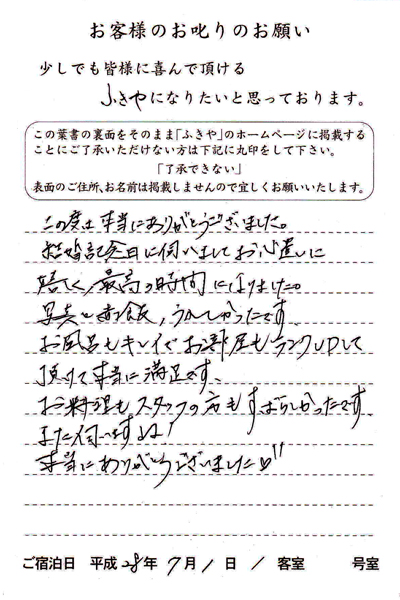 お客様のお叱りのお願い
少しでも皆様に喜んで頂ける
ふきやになりたいと思っております。
この葉書の裏面をそのまま「ふきや」のホームページに掲載する
ことにご了承いただけない方は下記に丸印をして下さい。
「了承できない」
表面のご住所、お名前は掲載しませんので宜しくお願いいたします。
この度は本当にありがとうございました。
結婚記念日に伺いましてお心遣いに
嬉しく、最高の時間になりました。
写真とお赤飯、うれしかったです。
お風呂もキレイでお部屋もランクUPして
頂けて本当に満足です。
お料理もスタッフの方もすばらしかったです。
また伺いますね!
本当にありがとうございました♡!!
ご宿泊日 平成28年 7月1日 / 客室 号室